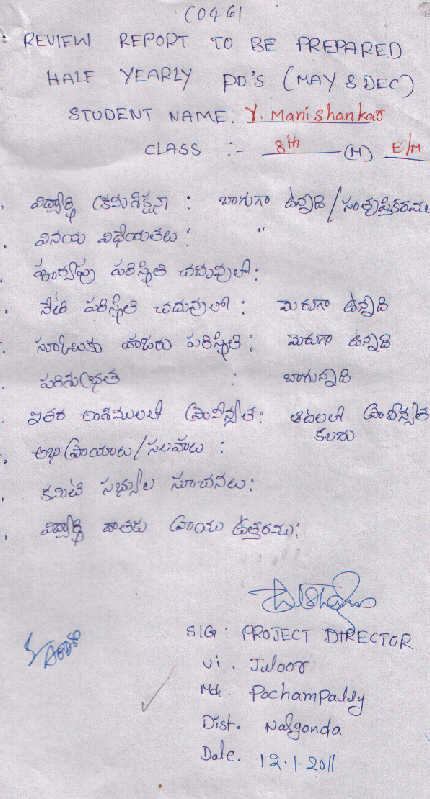 (046)
REVIEW REPORT TO BE PREPARED
HALF YEARLY PD'S (MAY & DEC)
STUDENT NAME: Y. Manishankar
CLASS :- 8th (M) E/M
విద్యార్థి క్రమశిక్షణ : బాగుగా ఉన్నది / సంతృప్తికరము
వినయ విధేయతలు : "
పరిస్థితి చదువులో :
నేటి పరిస్థితి చదువులో : మెరుగా ఉన్నది
స్కూలుకు హాజరు పరిస్థితి : మెరుగా ఉన్నది
పరిశుభ్రత : బాగున్నది
ఇతర ప్రావీణ్యత : ఆటలలో ప్రావీణ్యత
కలదు
అభిప్రాయాలు / సలహాలు :
కమిటీ సభ్యుల సూచనలు :
విద్యార్థి వ్రాయు ఉత్తరము :
SIG: PROJECT DIRECTOR
Vi. Juloor
Md. Pochampally
Dist. Nalgonda
Date. 12.1.2011